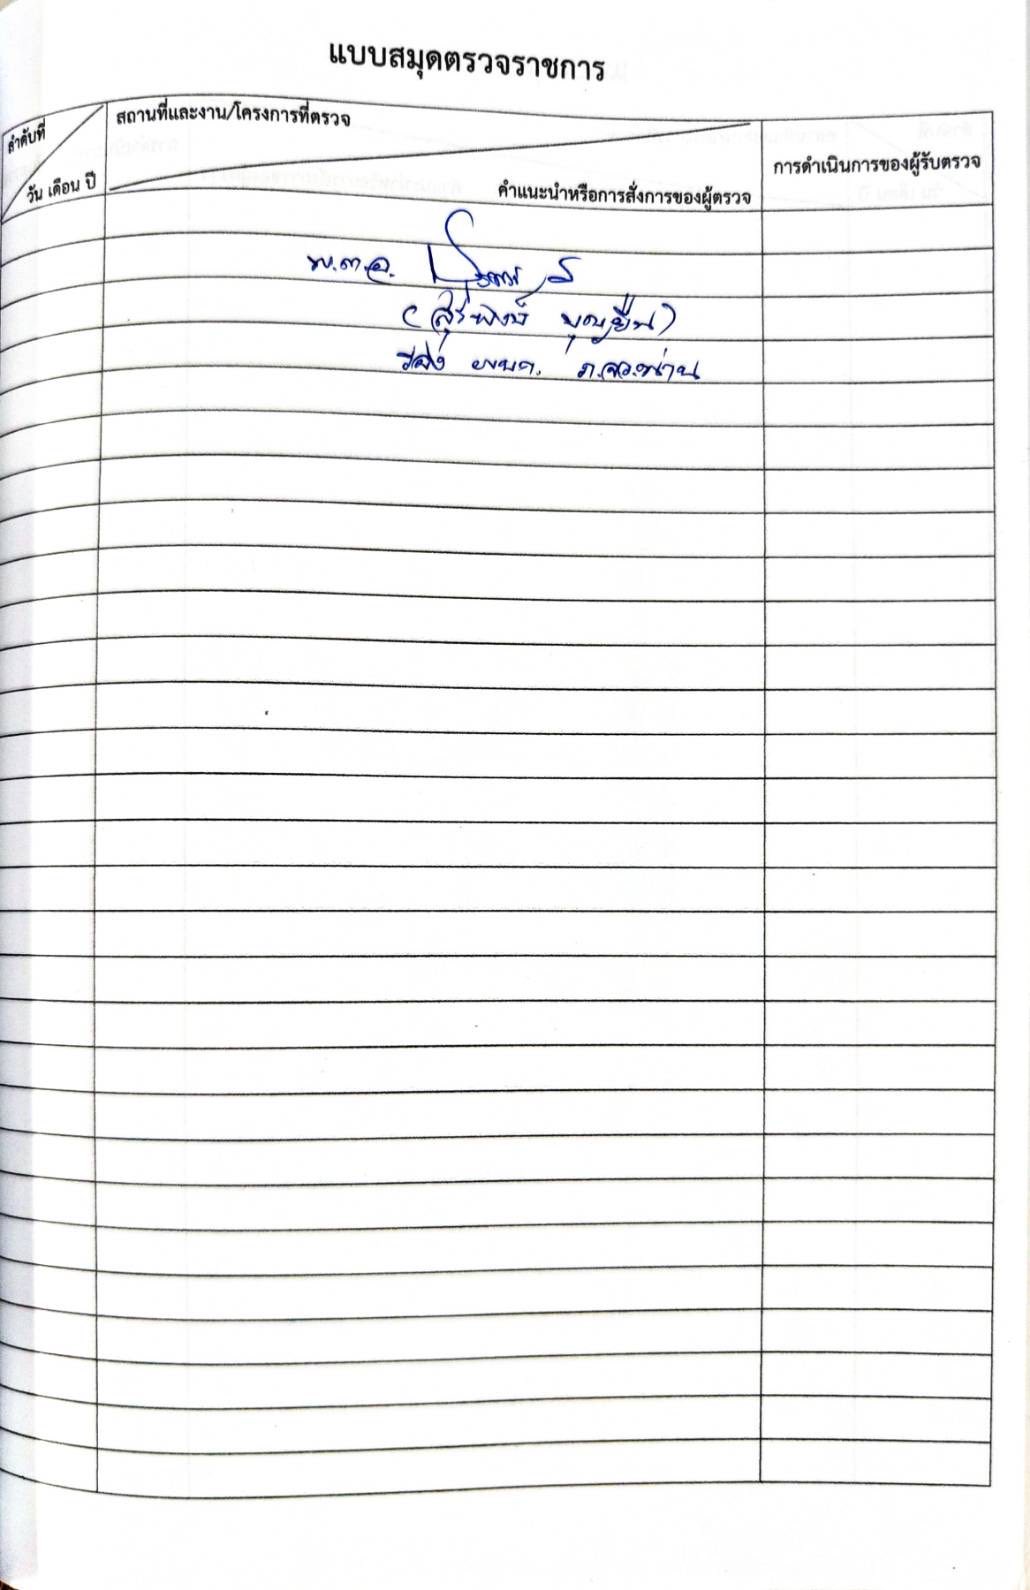 แบบสมุดตรวจราชการ
ลำดับที่
วัน เดือน ปี
สถานที่และงาน/โครงการที่ตรวจ
คำแนะนำหรือการสั่งการของผู้ตรวจ
การดำเนินการของผู้รับตรวจ
พ.ต.อ.
(สุรพงษ์ บุญยืน)
ภ.จว.น่าน